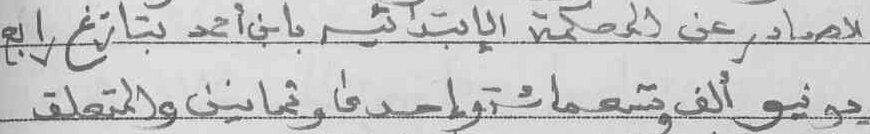 الصادر عن المحكمة الإبتدائية بابن أحمد بتاريخ رابع
يونيو ألف وتسعمائة وإحدى وثمانين والمتعلق